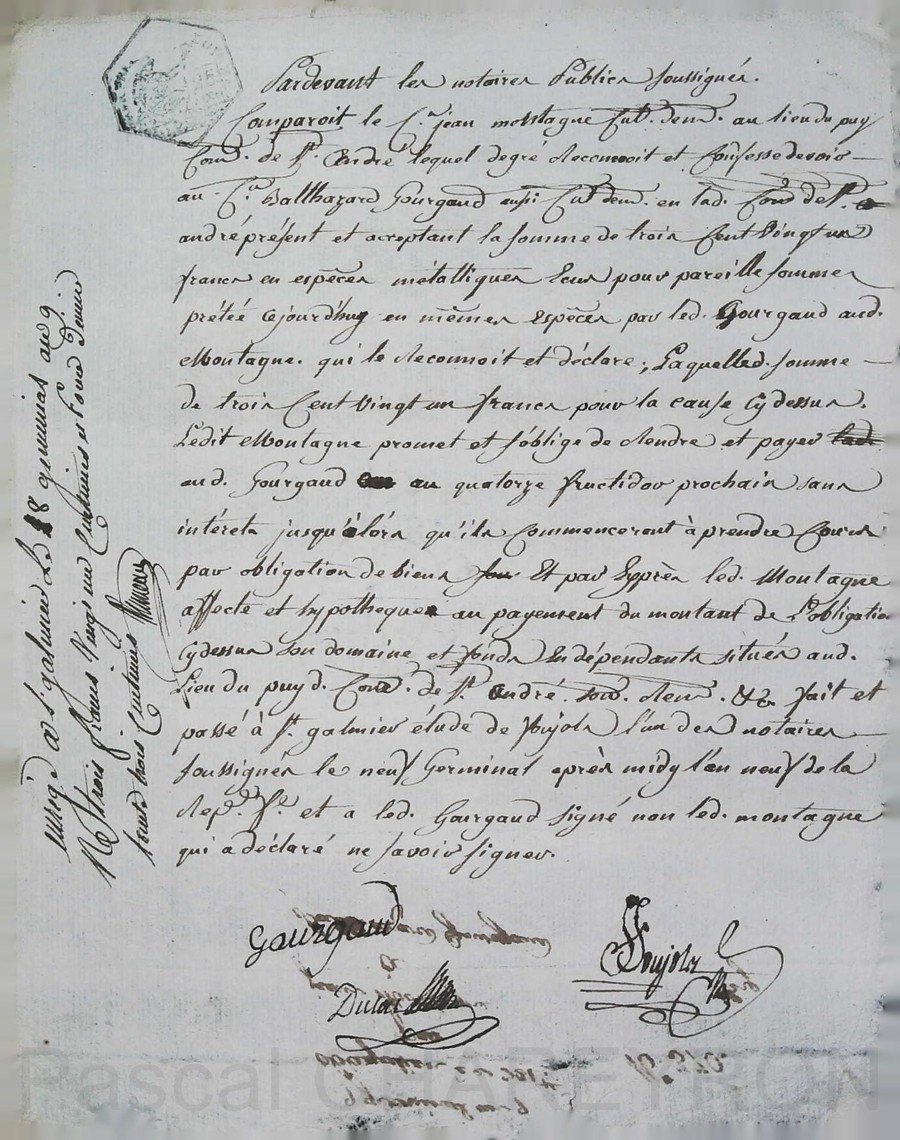 Pardevant les notaires Publics soussignés.
Comparoit le C.en jean montagne Cult. dem.t au lieu du puy
Com.e de S.t andré lequel degré Reconnoit et Confesse devoir
au C.en Balthazard Gourgaud aussi Cult. dem.t en lad. Com.e de S.t
andré présent et acceptant la somme de trois Cent Vingt un
francs en espèces métalliques Eeus pour pareille somme
prêtée cejourd'huy en mêmes Espèces par led. Gourgaud aud.
Montagne. qui le Reconnoit et déclare, Laquelle d. somme
de trois Cent Vingt un francs pour la cause Cydessus.
Ledit Montagne promet et s'oblige de Rendre et payer
aud. Gourgaud au quatorze fructidor prochain sans
intérets jusqu'alórs qu'ils Commenceront à prendre Cours
par obligation de biens Et par Exprès led. Montagne
affecte et hypotheque au payement du montant de L'obligation
Cydessus son domaine et fonds En dépendants situés aud.
Lieu du puy d. Com.e de S.t andré. sous. Rem. &a fait et
passé à S.t galmier étude de Poujols l'un des notaires
soussignés le neuf Germinal après midy l'an neuf de la
Rep.e f.e et a led. Gourgaud signé non led. montagne
qui a déclaré ne savoir signer.
Gourgaud
Poujols
Enreg.é à S.t galmier Le 18 germinas an 9
R trois francs Vingt un Centimes et pour Dixme
trente trois Centimes
Pascal CHAREYRON